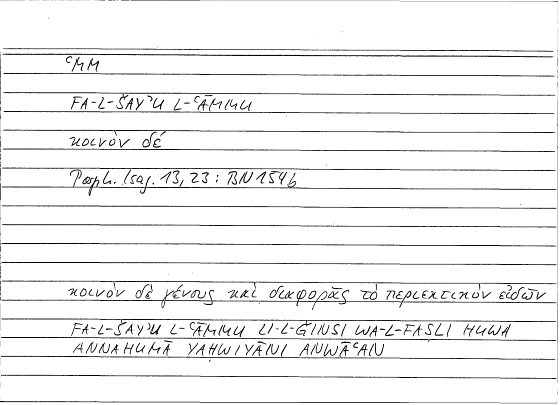 ʿMM
FA-L-ŠAYʾU L-ʿĀMMU
κοινὸν δέ
Porph. Isag. 13, 23 : BN 154b
κοινὸν δὲ γένους καὶ διαφορᾶς τὸ περιεκτικὸν εἰδῶν
FA-L-ŠAYʾU L-ʿĀMMU LI-L-ǦINSI WA-L-FASLI HUWA
ANNAHUMĀ YAHWIYĀNI ANWĀʿAN